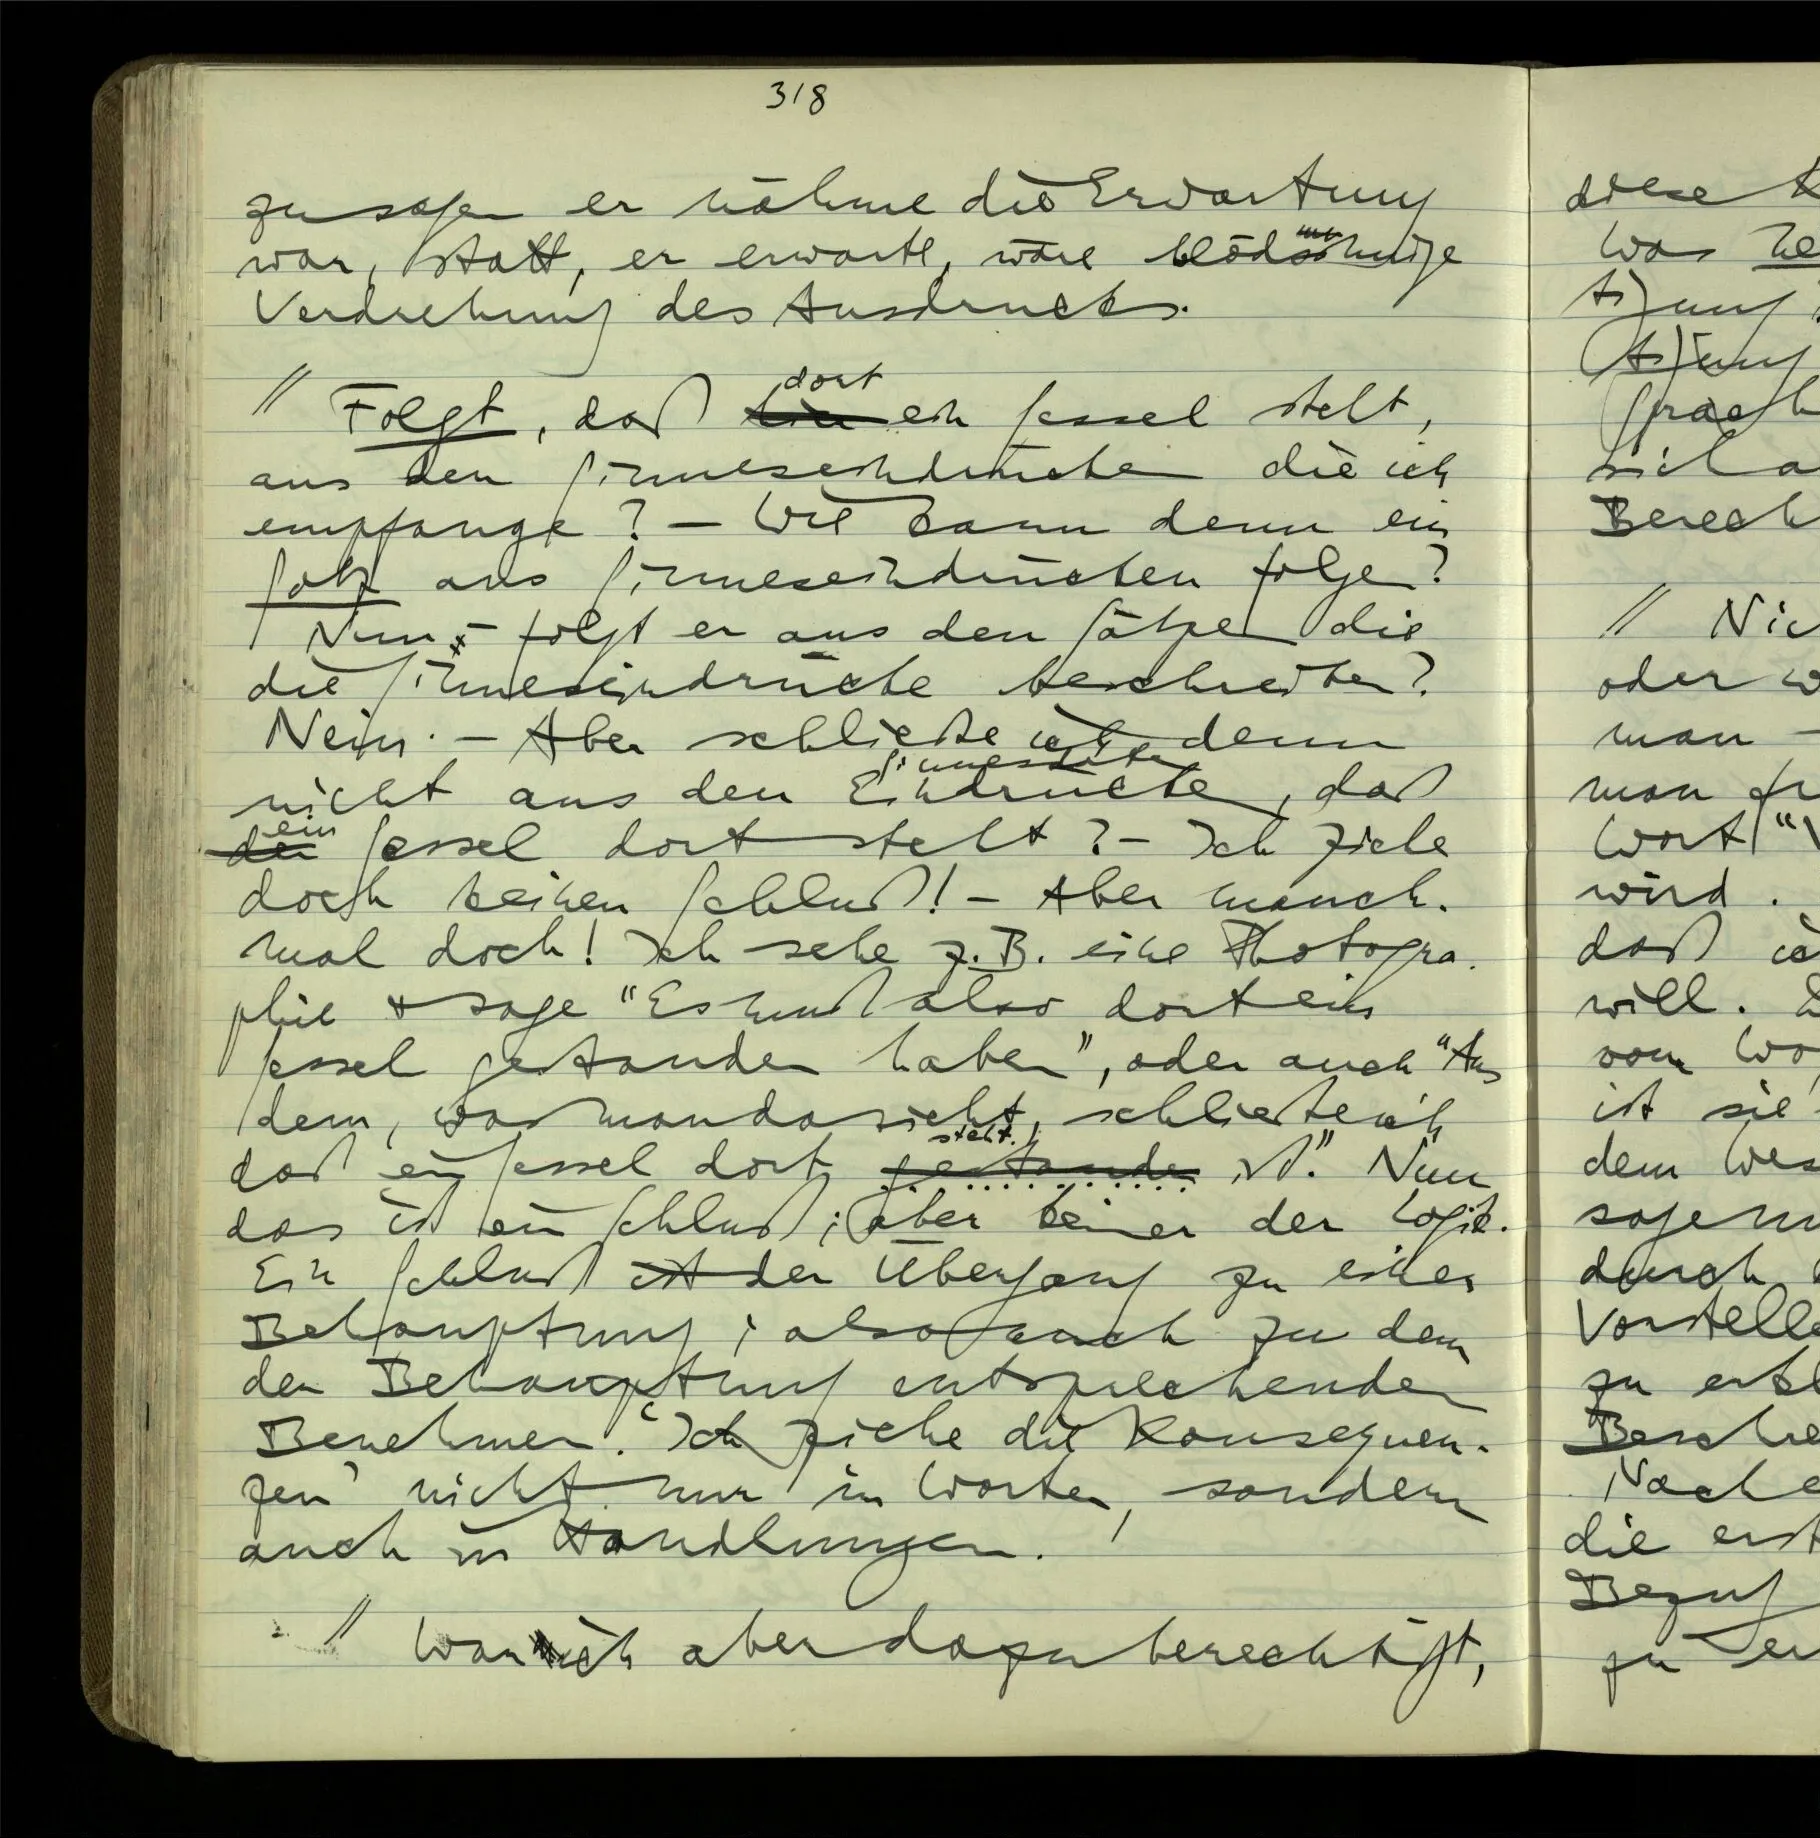 318
zu sagen er nähme die Erwartung
war, statt, er erwarte, wäre blödsinnige
Verdrehung des Ausdrucks.
// Folgt, daß hier dort ein Sessel steht,
aus den Sinneseindrücken die ich
empfange? – Wie kann denn ein
Satz aus Sinneseindrücken folgen?
Nun – folgt er aus den Sätzen die
die Sinneseindrücke beschreiben?
Nein. – Aber schließe ich denn
nicht aus den Eindrücken, Sinnesdaten, daß
der ein Sessel dort steht? – Ich ziehe
doch keinen Schluß! – Aber manch-
mal doch! Ich sehe z.B. eine Photogra-
phie & sage “Es muß also dort ein
Sessel gestanden haben”, oder auch “Aus
dem, was man da sieht, schließe ich
daß ein Sessel dort gestanden steht. ist.” Nun
das ist ein Schluß; aber keiner der Logik.
Ein Schluß ist der Übergang zu einer
Behauptung; also auch zu dem
der Behauptung entsprechenden
Benehmen. ‘Ich ziehe die Konsequen-
zen’ nicht nur in Worten, sondern
auch in Handlungen.
// War ich aber dazu berechtigt,
diese
Was
sich a
Berech
// Nic
oder w
man –
man fr
Wort “
wird.
daß ic
will.
vom Wo
ist sie
dem Wes
sage
durch
Vorstelle
zu erkl
Beschre
Nache
die erst
Bezug
zu